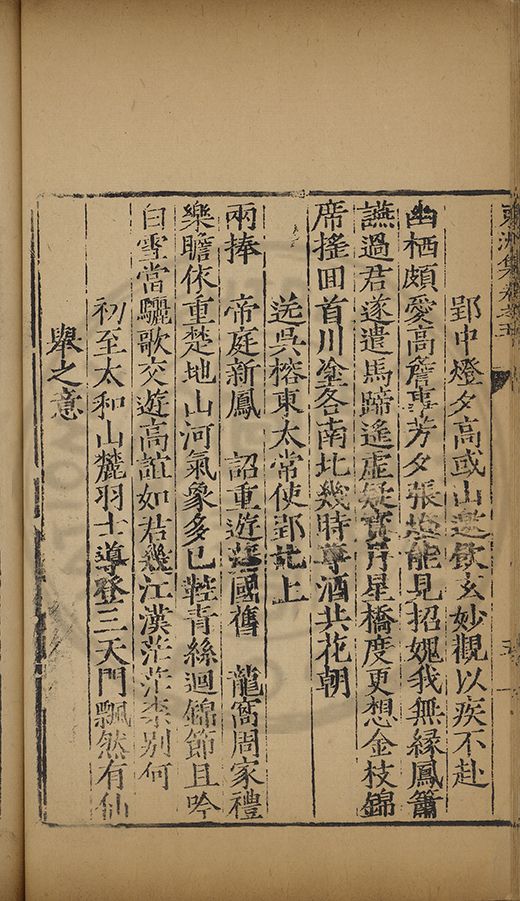 東洲集卷之五
郢中燈夕高或山邀飲玄妙觀以疾不赴
幽栖頗愛高詹事芳夕張筵能見招媿我無緣鳳簫
讌過君遂遣馬蹄遙虛疑寳月星橋度更想金枝錦
席搖回首川塗各南北幾時尊酒共花朝
送吳榕東太常使郢北上
兩捧 帝庭新鳳 詔重遊楚國舊 龍窩周家禮
樂瞻依重楚地山河氣象多已牽青絲迴錦節且吟
白雪當驪歌交遊高誼如君幾江漢茫茫柰別何
初至太和山麓羽士導登三天門飄然有仙
舉之意
五 一